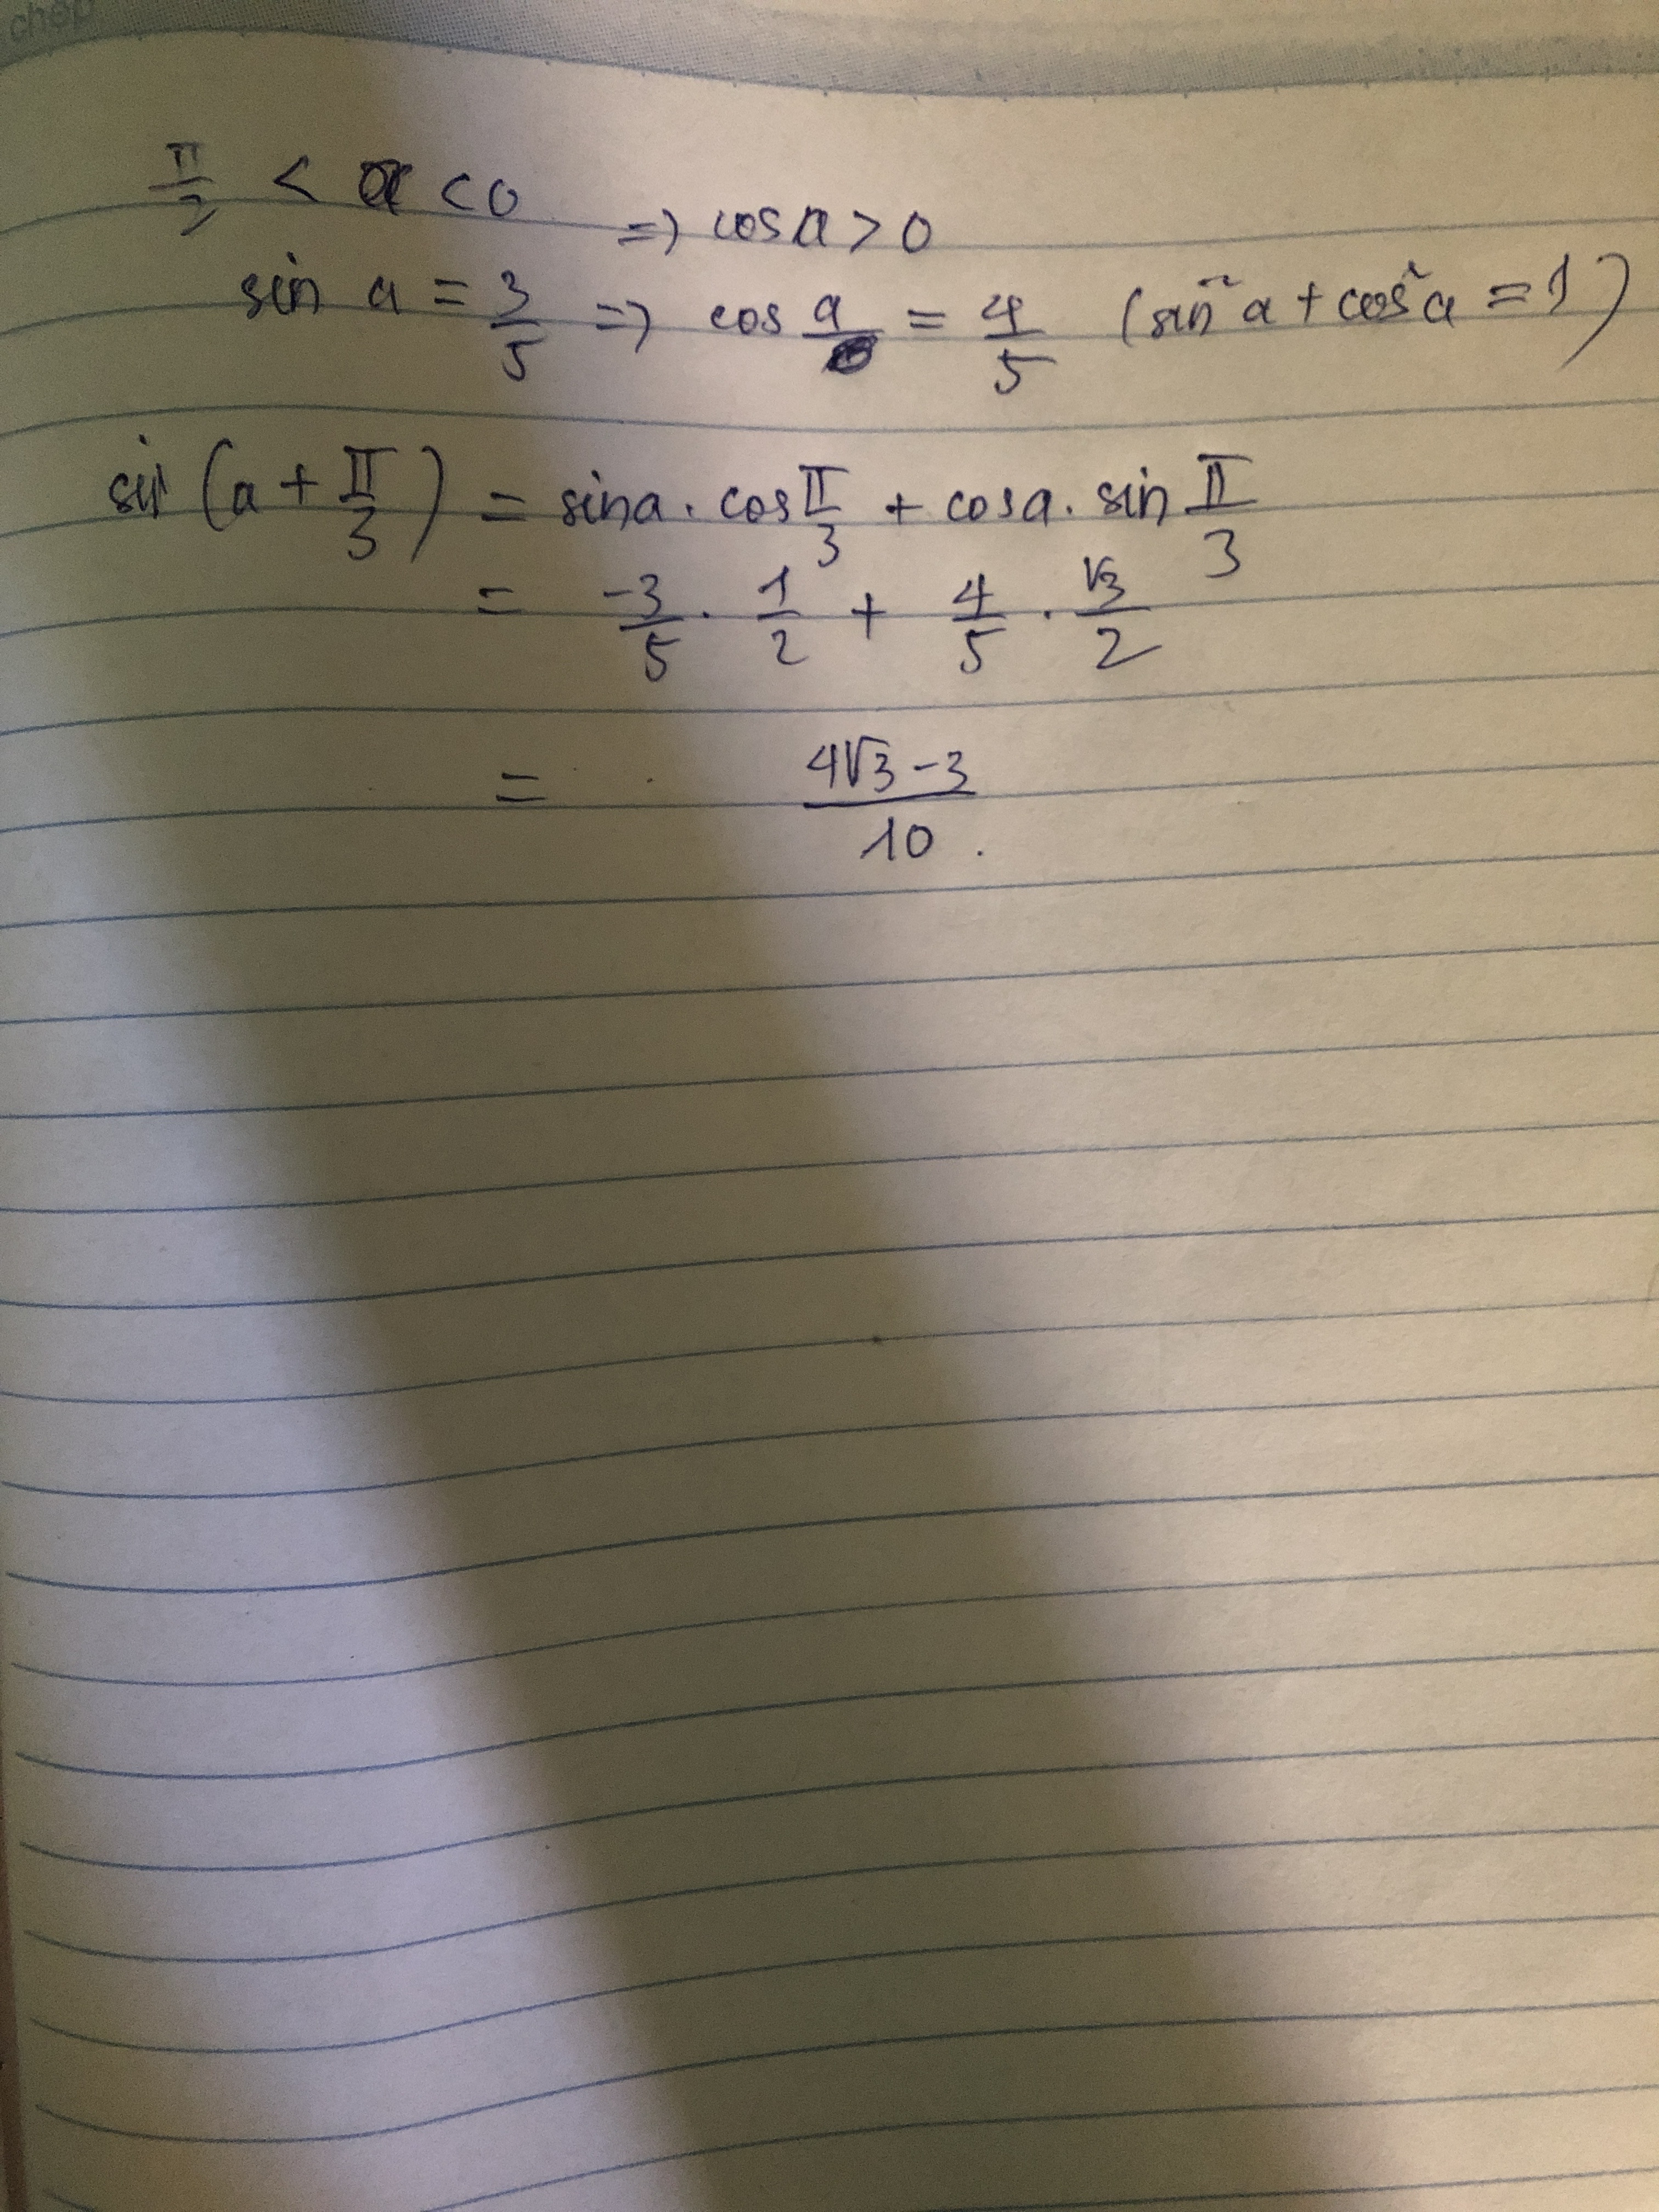 chép
π/2 < a < 0 => cos a > 0
sin a = 3/5 => cos a = 4/5 (sin² a + cos² a = 1)
sin (a + π/3) = sin a . cos π/3 + cos a . sin π/3
= -3/5 . 1/2 + 4/5 . √3/2
= (4√3 - 3)/10 .